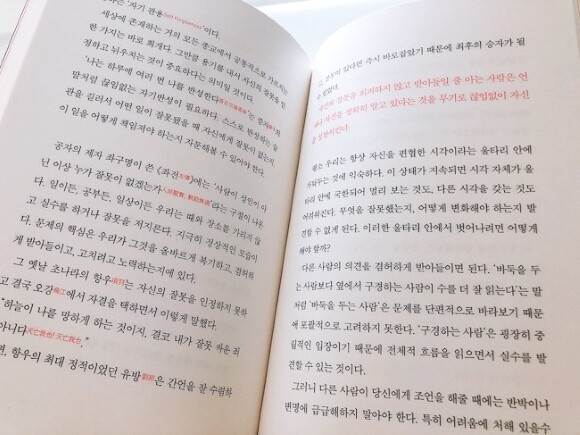 는 '자기 관용Self-Forgiveness'이다.
세상에 존재하는 거의 모든 종교에서 공통적으로 가르치는
한 가지는 바로 회개다. 그만큼 용기를 내서 자신의 잘못을 인
정하고 뉘우치는 것이 중요하다는 의미일 것이다.
'나는 하루에 여러 번 나를 반성한다
말처럼 끊임없는 자기반성이 필요하다. 스스로 반성하는 습
관을 길러서 어떤 일이 잘못됐을 때 자신에게 잘못이 없는지,
이 일을 어떻게 책임져야 하는지 자문해볼 수 있어야 한다.
공자의 제자 좌구명이 쓴 《좌전左傳》에는 "사람이 성인이 아
닌 이상 누가 잘못이 없겠는가人非聖賢, 孰能無過"라는 구절이 나온
다. 일이든, 공부든, 일상이든 우리는 때와 장소를 가리지 않
고 실수를 하거나 잘못을 저지른다. 지극히 정상적인 모습이
다. 문제의 핵심은 우리가 그것을 올바르게 복기하고, 겸허하
게 받아들이고, 고치려고 노력하는지에 있다.
그 옛날 초나라의 항우項羽는 자신의 잘못을 인정하지 못하
고 결국 오강烏江에서 자결을 택하면서 이렇게 말했다.
"하늘이 나를 망하게 하는 것이지, 결코 내가 잘못 싸운 죄
아니다天亡我也! 天亡我也."
면, 항우의 최대 정적이었던 유방劉邦은 간언을 잘 수렴하
고, 잘못이 있다면 즉시 바로잡았기 때문에 최후의 승자가 될
수 있었다.
자신의 잘못을 회피하지 않고 받아들일 줄 아는 사람은 언
자신을 명확히 알고 있다는 것을 무기로 끊임없이 자신
을 성장시킨다.
평소 우리는 항상 자신을 편협한 시각이라는 울타리 안에
가둬두는 것에 익숙하다. 이 상태가 지속되면 시각 자체가 울
타리 안에 국한되어 멀리 보는 것도, 다른 시각을 갖는 것도
어려워진다. 무엇을 잘못했는지, 어떻게 변화해야 하는지 발
견할 수 없게 된다. 이러한 울타리 안에서 벗어나려면 어떻게
해야 할까?
다른 사람의 의견을 겸허하게 받아들이면 된다. '바둑을 두
는 사람보다 옆에서 구경하는 사람이 수를 더 잘 읽는다'는 말
처럼 '바둑을 두는 사람'은 문제를 단편적으로 바라보기 때문
에 포괄적으로 고려하지 못한다. '구경하는 사람'은 굉장히 중
립적인 입장이기 때문에 전체적 흐름을 읽으면서 실수를 발
견할 수 있는 것이다.
그러니 다른 사람이 당신에게 조언을 해줄 때에는 반박이나
변명에 급급해하지 말아야 한다. 특히 어려움에 처해 있을수